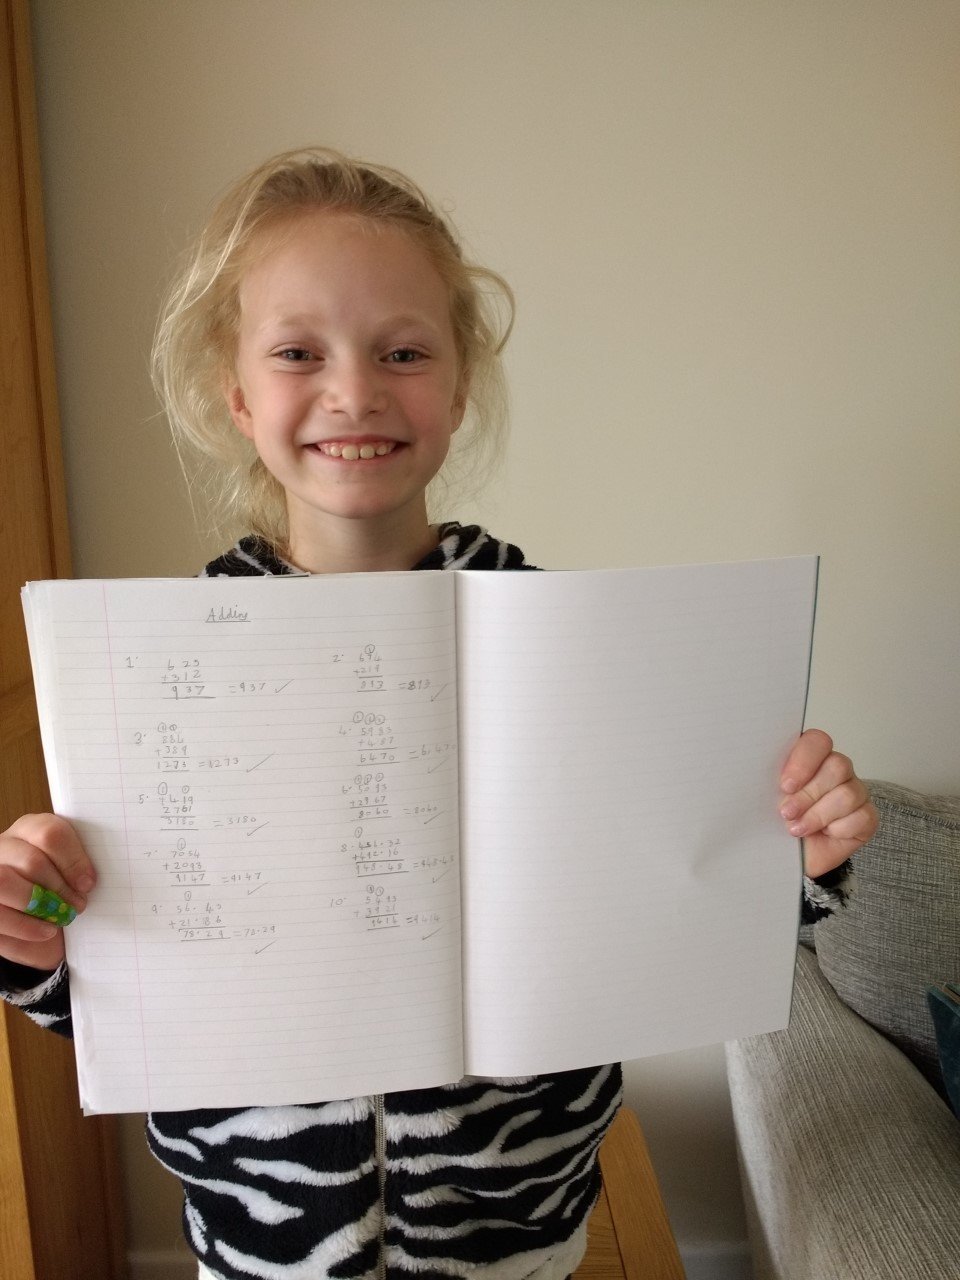 Adding
1. 625
+312
937 = 937 ✓
2. 674
+219
893 = 893 ✓
3. 884
+389
1273 = 1273 ✓
4. 5983
+487
6470 = 6,470 ✓
5. +419
2761
3180 = 3180 ✓
6. 5093
+2967
8060 = 8060 ✓
7. 7054
+2093
9147 = 9147 ✓
8. 456.32
+492.16
948.48 = 948.48 ✓
9. 56.43
+21.86
78.29 = 78.29 ✓
10. 5493
+3921
9414 = 9414 ✓